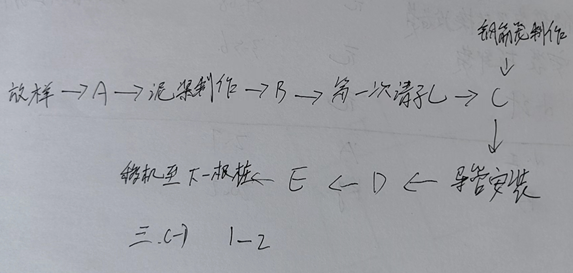 钢筋笼制作
↓
放样→A→泥浆制作→B→第一次清孔→C
↓
移机至下一根桩←E←D←导管安装
三.(一) 1-2